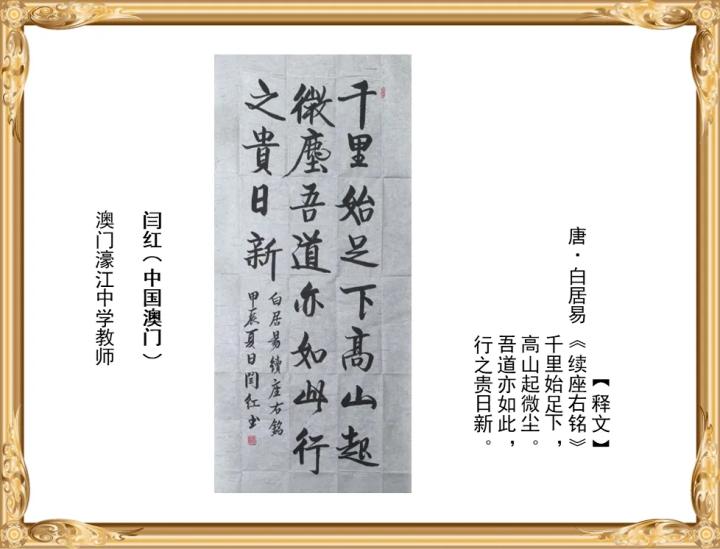 【释文】
唐·白居易《续座右铭》
千里始足下，
高山起微尘。
吾道亦如此，
行之贵日新。
千里始足下高山起
微塵吾道亦如此行
之貴日新
白居易續座右銘
甲辰夏日闫红书
闫红（中国澳门）
澳门濠江中学教师